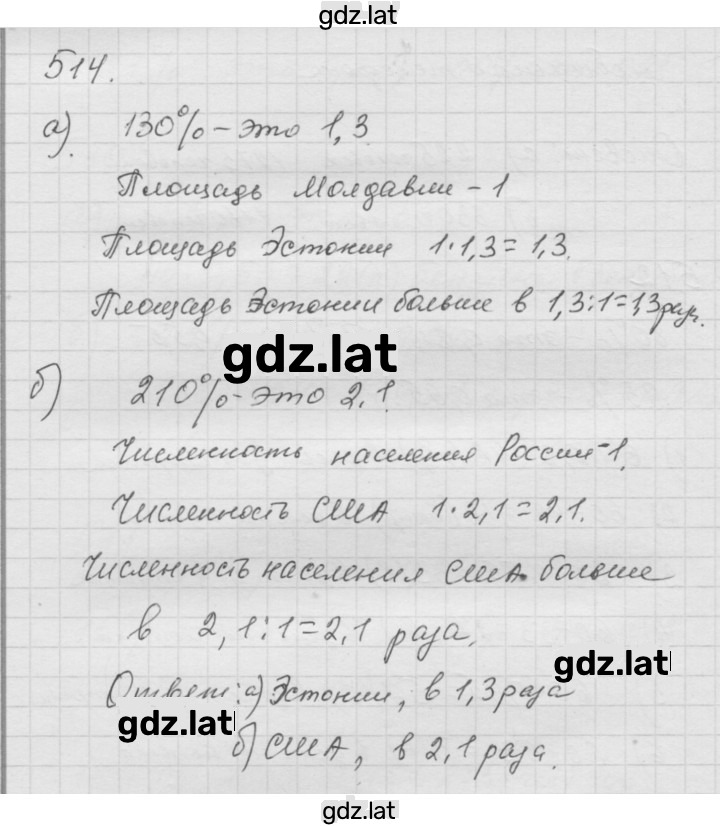 gdz.lat
514.
а) 130% - это 1,3
Площадь Молдавии - 1
Площадь Эстонии 1·1,3=1,3.
Площадь Эстонии больше в 1,3:1=1,3 раз.
gdz.lat
б) 210% - это 2,1.
Численность населения России - 1.
Численность США 1·2,1=2,1.
Численность населения США больше
в 2,1:1=2,1 раза.
gdz.lat
Ответ: а) Эстонии, в 1,3 раза
gdz.lat
б) США, в 2,1 раза.
gdz.lat